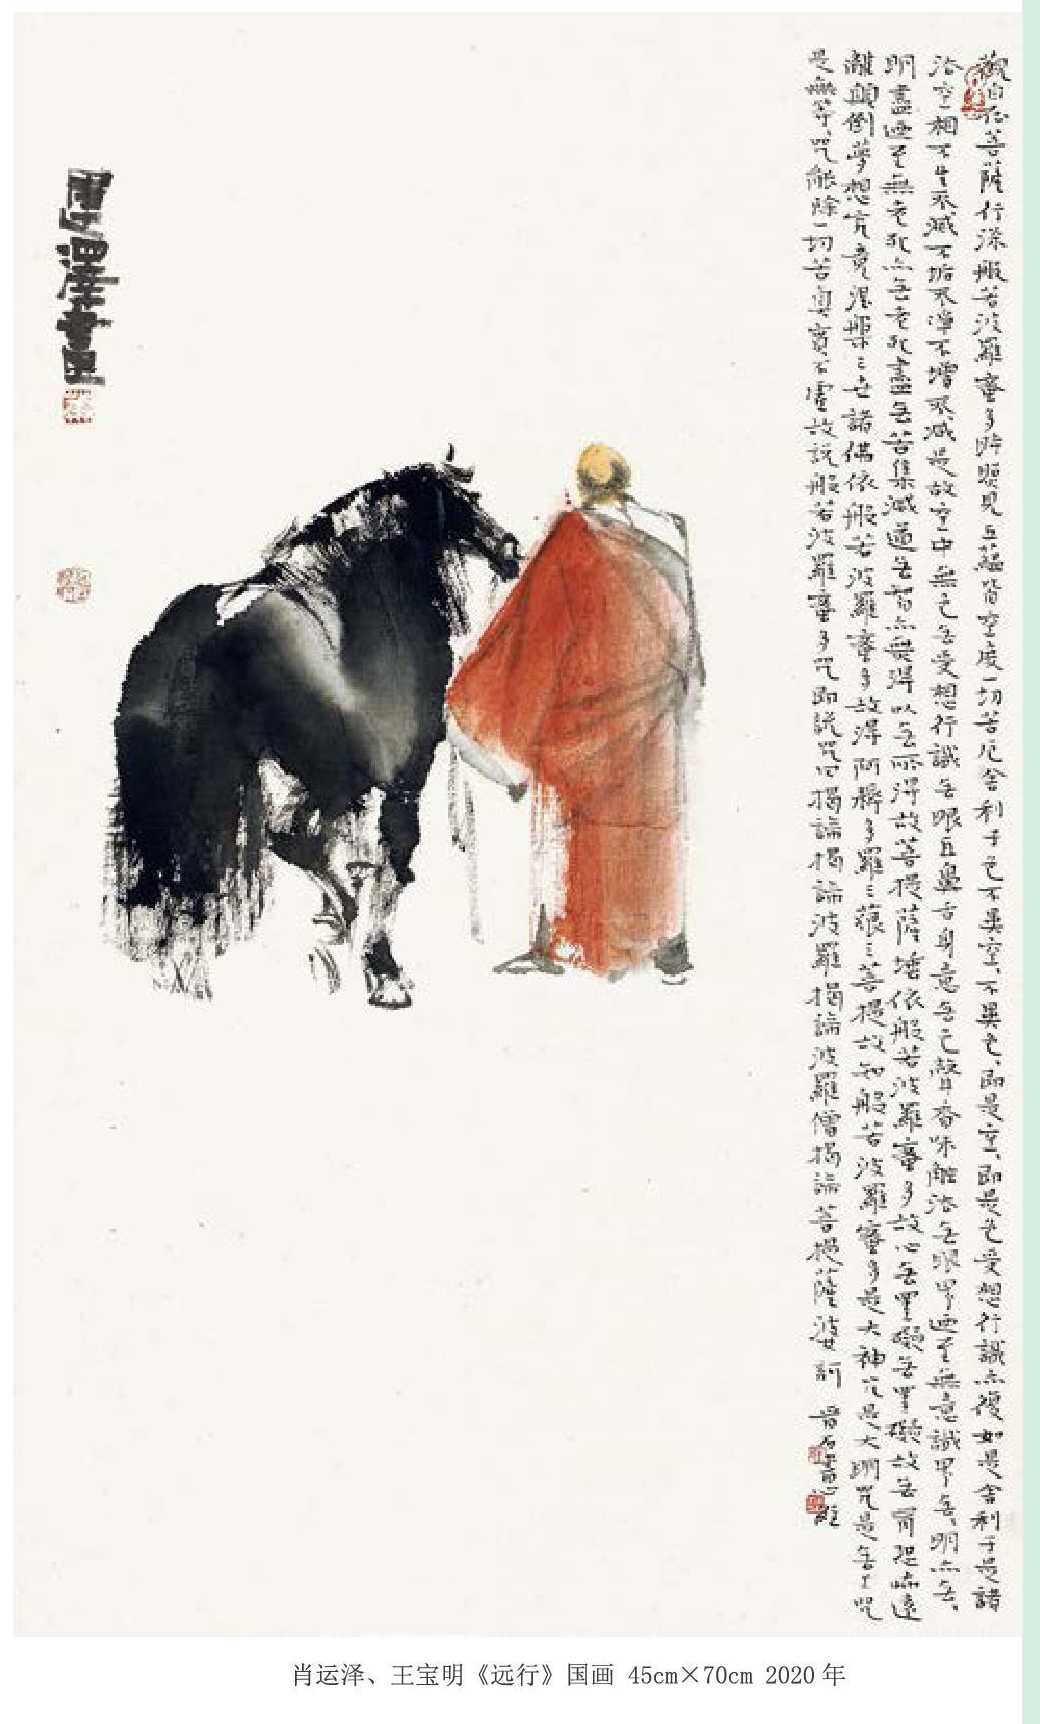 觀自在菩薩行深般若波羅蜜多時照見五蘊皆空度一切苦厄舍利子色不異空、不異色、即是空、即是色受想行識亦復如是舍利子是諸
法空相不生不滅不垢不淨不增不減是故空中無色无受想行識无眼耳鼻舌身意无色聲香味觸法无眼界迺至無意識界无、明亦无、
明盡迺至無老死亦无老死盡无苦集滅道无智亦無得以无所得故菩提薩埵依般若波羅蜜多故心无罣礙无罣礙故无有恐怖遠
離顛倒夢想究竟涅槃三世諸佛依般若波羅蜜多故得阿耨多羅三藐三菩提故知般若波羅蜜多是大神咒是大明咒是无上咒
是無等、咒能除一切苦真實不虛故說般若波羅蜜多咒即說咒曰揭諦揭諦波羅揭諦波羅僧揭諦菩提薩婆訶
運澤畫
肖运泽、王宝明《远行》国画 45cm×70cm 2020年